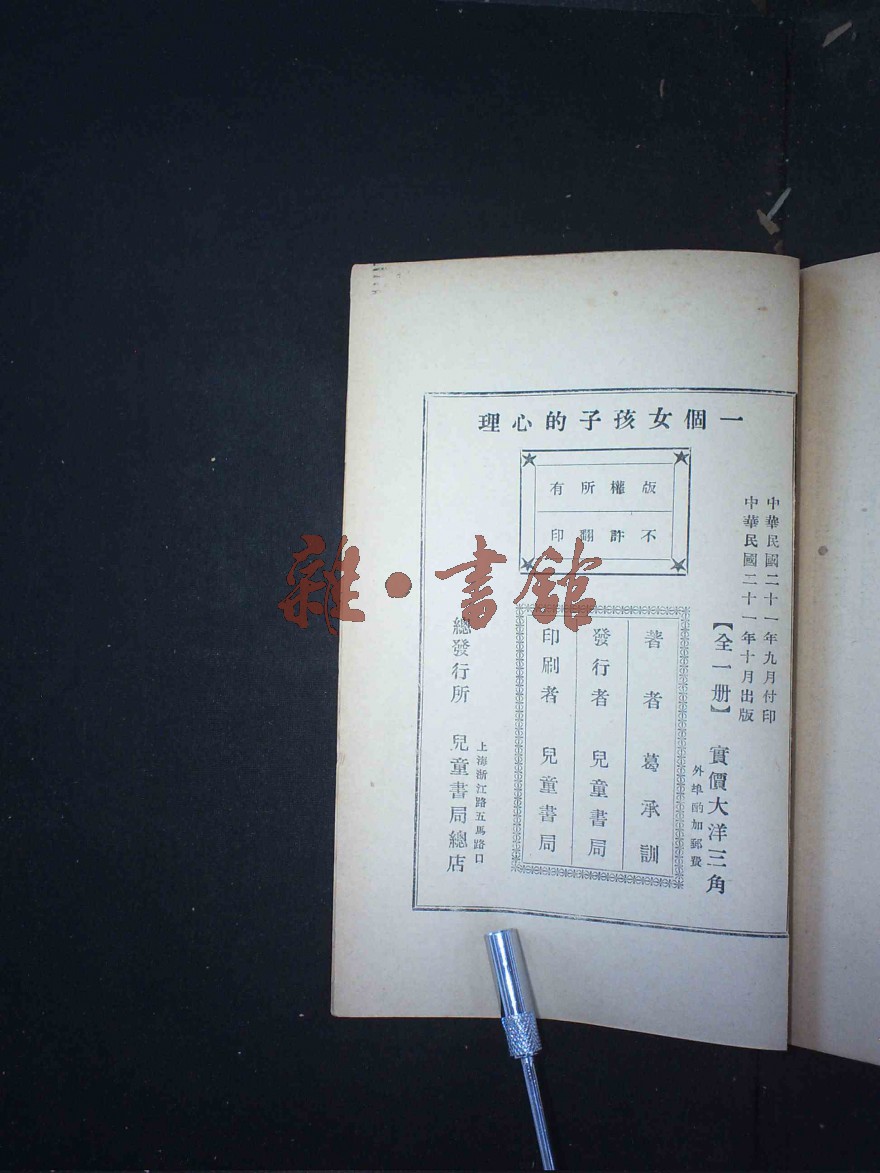 一個女孩子的心理
版權所有
不許翻印
中華民國二十一年九月付印
中華民國二十一年十月出版
【全一册】 實價大洋三角
外埠酌加郵費
著者 葛承訓
發行者 兒童書局
印刷者 兒童書局
上海浙江路五馬路口
總發行所 兒童書局總店
雜·書館